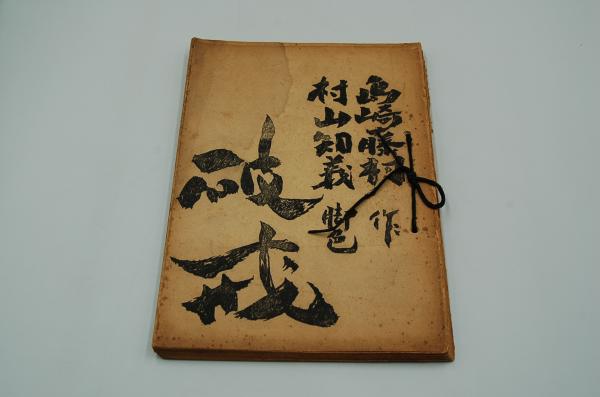 島崎藤村 作
村山知義 脚色
破戒